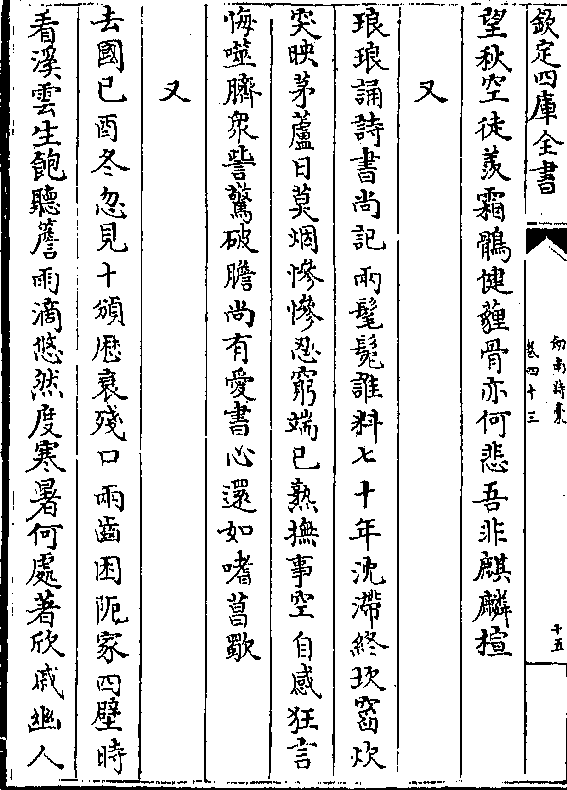 欽定四庫全書
劍南詩稾
卷四十三
十五
望秋空徒羡霜鶻健薶骨亦何悲吾非麒麟楦
又
琅琅誦詩書尚記兩髦髧誰料七十年沈滯終坎窞炊
突映茅蘆日莫烟慘慘忍窮端已熟撫事空自感狂言
悔噬臍衆訾驚破膽尚有愛書心還如嗜菖歜
又
去國已酉冬忽見十頒厯衰殘口兩齒困阨家四壁時
看溪雲生飽聽簷雨滴悠然度寒暑何處著欣戚幽人